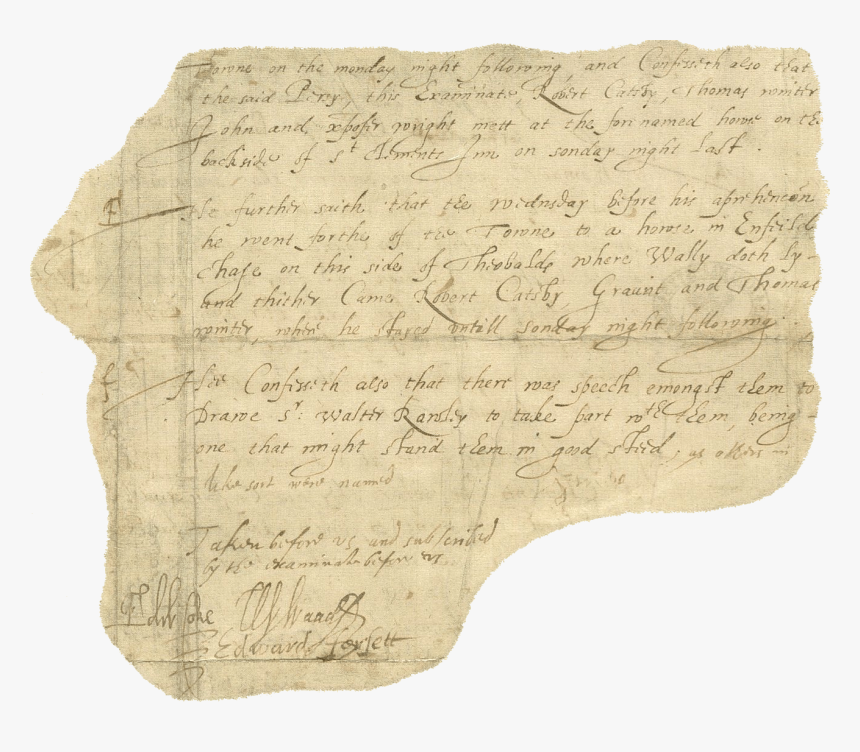 Towne on the monday night following, and Confesseth also that
the said Percy, this Examinate, Robert Catsby, Thomas winter
John and xpofer wright mett at the forenamed howse on the
backside of St Clements Inn on sonday night last.
He further saith that the wednsday before his aprehencion
he went forthe of the Towne to a howse in Enfeild
Chase on this side of Theobalds where Wally doth ly-
and thither Came Robert Catsby, Graunt and Thomas
winter, where he stayed untill sonday night following.
Hee Confesseth also that there was speech emongst them to
Drawe Sr: Walter Rawley to take part wth them, being
one that might stand them in good steed, as others in
like sort were named
Taken before us and subscribed
by the examinate before us.
Edw Coke W Waad
Edward forsett